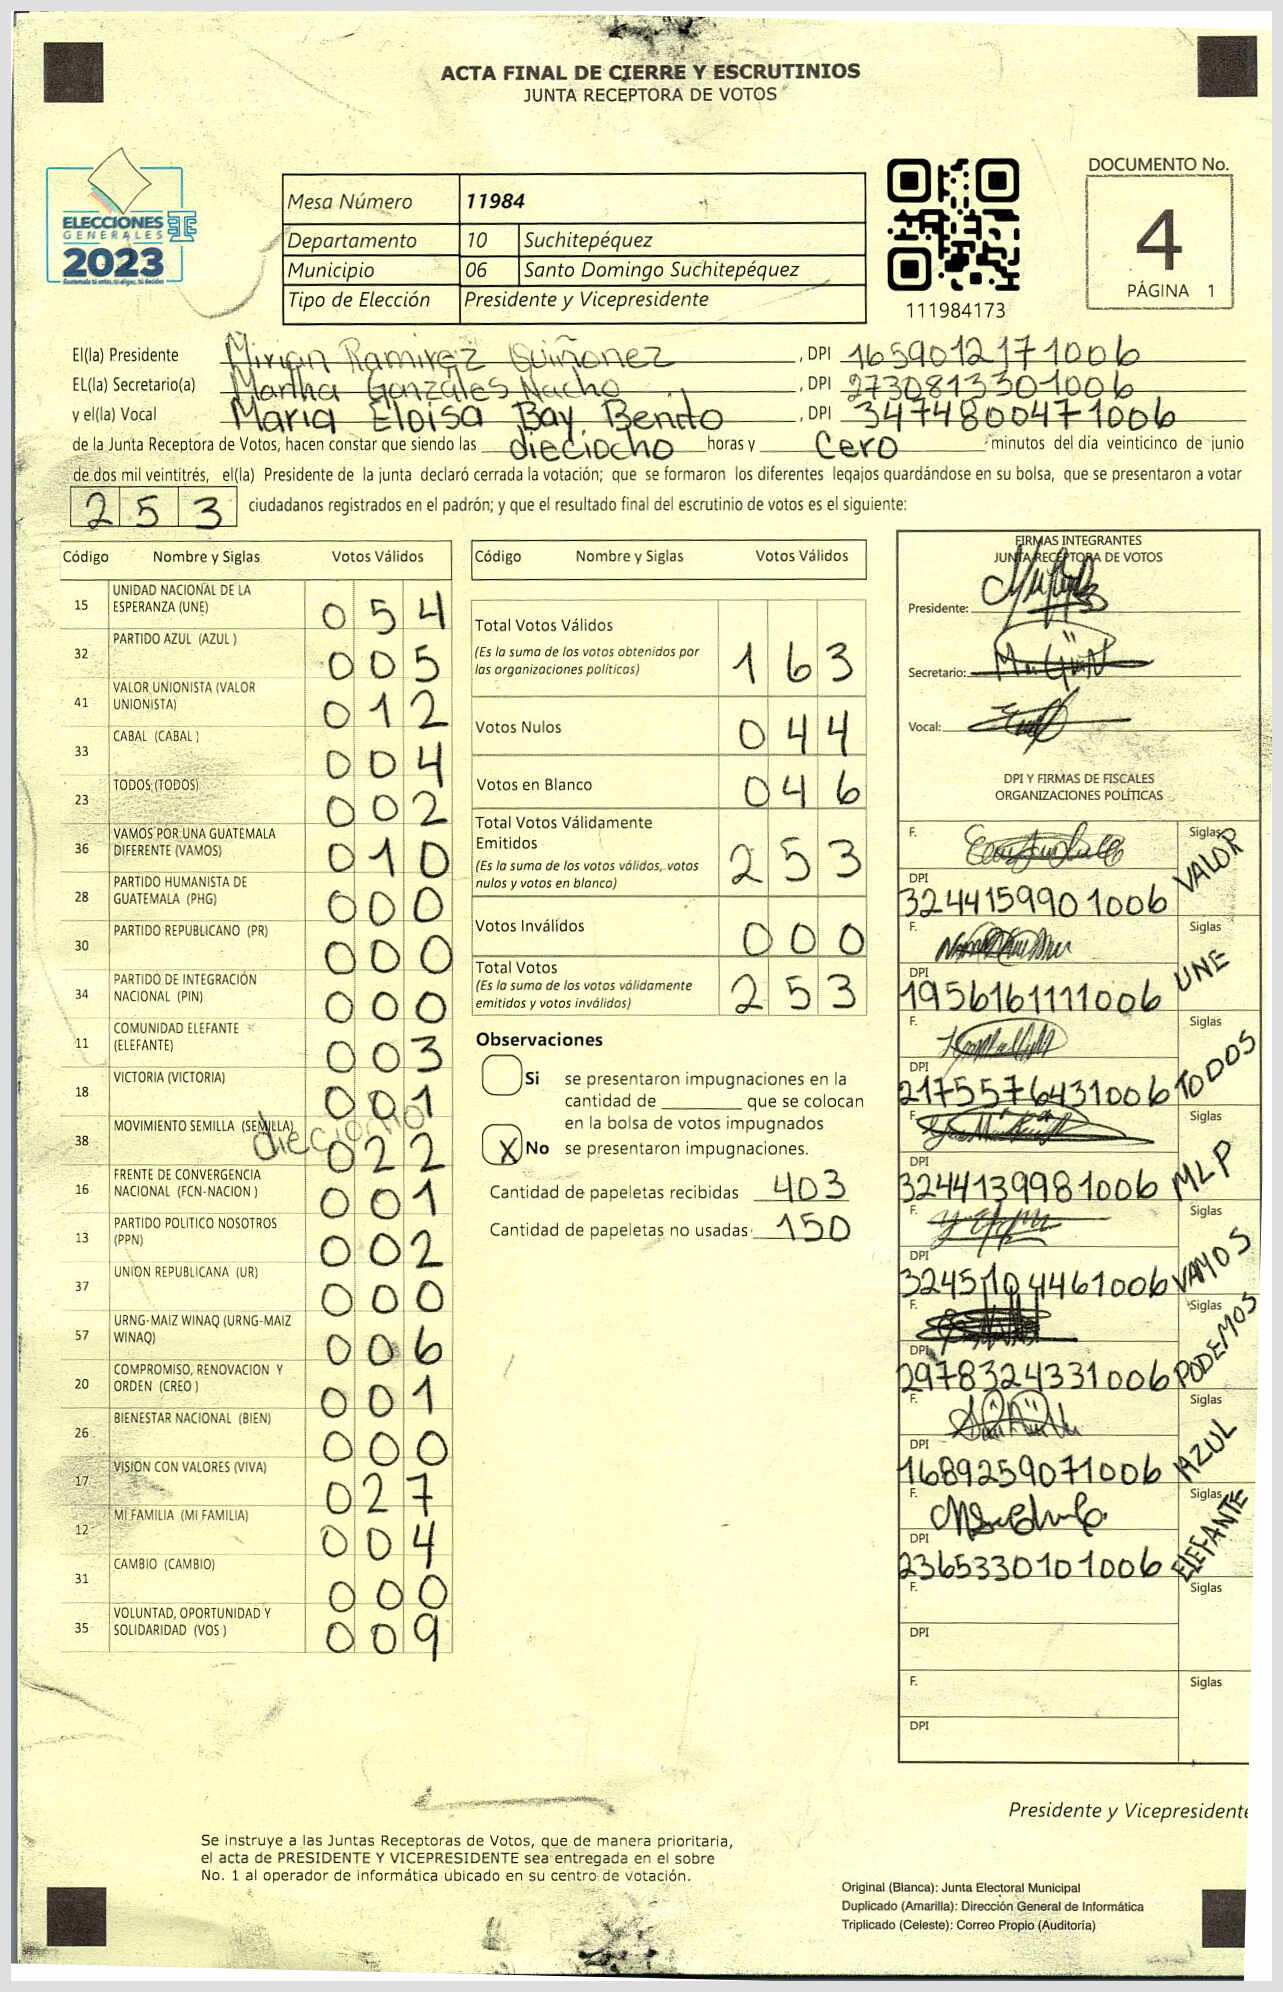 ACTA FINAL DE CIERRE Y ESCRUTINIOS
JUNTA RECEPTORA DE VOTOS
ELECCIONES
GENERALES
2023
Guatemala tú votas, tú eliges, tú decides
Mesa Número 11984
Departamento 10 Suchitepéquez
Municipio 06 Santo Domingo Suchitepéquez
Tipo de Elección Presidente y Vicepresidente
111984173
DOCUMENTO No.
4
PÁGINA 1
El(la) Presidente Mirian Ramirez Quiñonez, DPI 1659012171006
EL(la) Secretario(a) Martha Gonzáles Nacho, DPI 2730813301006
y el(la) Vocal Maria Eloisa Bay Benito, DPI 3474800471006
de la Junta Receptora de Votos, hacen constar que siendo las dieciocho horas y Cero minutos del día veinticinco de junio
de dos mil veintitrés, el(la) Presidente de la junta declaró cerrada la votación; que se formaron los diferentes legajos guardándose en su bolsa, que se presentaron a votar
253 ciudadanos registrados en el padrón; y que el resultado final del escrutinio de votos es el siguiente:
Código Nombre y Siglas Votos Válidos
15 UNIDAD NACIONAL DE LA ESPERANZA (UNE) 054
32 PARTIDO AZUL (AZUL ) 005
41 VALOR UNIONISTA (VALOR UNIONISTA) 012
33 CABAL (CABAL ) 004
23 TODOS (TODOS) 002
36 VAMOS POR UNA GUATEMALA DIFERENTE (VAMOS) 010
28 PARTIDO HUMANISTA DE GUATEMALA (PHG) 000
30 PARTIDO REPUBLICANO (PR) 000
34 PARTIDO DE INTEGRACIÓN NACIONAL (PIN) 000
11 COMUNIDAD ELEFANTE (ELEFANTE) 003
18 VICTORIA (VICTORIA) 001
38 MOVIMIENTO SEMILLA (SEMILLA) 022
dieciocho
16 FRENTE DE CONVERGENCIA NACIONAL (FCN-NACION ) 001
13 PARTIDO POLITICO NOSOTROS (PPN) 002
37 UNION REPUBLICANA (UR) 000
57 URNG-MAIZ WINAQ (URNG-MAIZ WINAQ) 006
20 COMPROMISO, RENOVACION Y ORDEN (CREO ) 001
26 BIENESTAR NACIONAL (BIEN) 000
17 VISION CON VALORES (VIVA) 027
12 MI FAMILIA (MI FAMILIA) 004
31 CAMBIO (CAMBIO) 000
35 VOLUNTAD, OPORTUNIDAD Y SOLIDARIDAD (VOS ) 009
Código Nombre y Siglas Votos Válidos
Total Votos Válidos 163
(Es la suma de los votos obtenidos por
las organizaciones políticas)
Votos Nulos 044
Votos en Blanco 046
Total Votos Válidamente
Emitidos 253
(Es la suma de los votos válidos, votos
nulos y votos en blanco)
Votos Inválidos 000
Total Votos 253
(Es la suma de los votos válidamente
emitidos y votos inválidos)
Observaciones
Si se presentaron impugnaciones en la
cantidad de ________ que se colocan
en la bolsa de votos impugnados
X No se presentaron impugnaciones.
Cantidad de papeletas recibidas 403
Cantidad de papeletas no usadas 150
FIRMAS INTEGRANTES
JUNTA RECEPTORA DE VOTOS
Presidente:
Secretario:
Vocal:
DPI Y FIRMAS DE FISCALES
ORGANIZACIONES POLÍTICAS
F. Siglas VALOR
DPI 3244159901006
F. Siglas UNE
DPI 1956161111006
F. Siglas TODOS
DPI 2175576431006
F. Siglas MLP
DPI 3244139981006
F. Siglas VAMOS
DPI 3245104461006
F. Siglas PODEMOS
DPI 2978324331006
F. Siglas AZUL
DPI 1689259071006
F. Siglas ElEFANTE
DPI 2365330101006
F. Siglas
DPI
F. Siglas
DPI
Presidente y Vicepresidente
Se instruye a las Juntas Receptoras de Votos, que de manera prioritaria,
el acta de PRESIDENTE Y VICEPRESIDENTE sea entregada en el sobre
No. 1 al operador de informática ubicado en su centro de votación.
Original (Blanca): Junta Electoral Municipal
Duplicado (Amarilla): Dirección General de Informática
Triplicado (Celeste): Correo Propio (Auditoría)